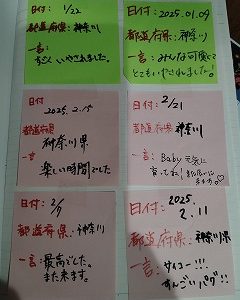 日付: 1/22
都道府県: 神奈川
一言:
ちさく いやされました。
日付: 2025.01.09
都道府県: 神奈川
一言: みんな可愛くて
とてもいやされました。
日付
2025. 2.15
都道府県
神奈川県
一言
楽しい時間でした
日付: 2/21
都道府県: 神奈川
一言: Baby 元気に
育ってね!
日付: 2/7
都道府県: 神奈川
一言: 最高でした。
また来ます。
日付: 2025
2.11
都道府県: 神奈川県
一言: サイコー!!!
すんごいパグ!!